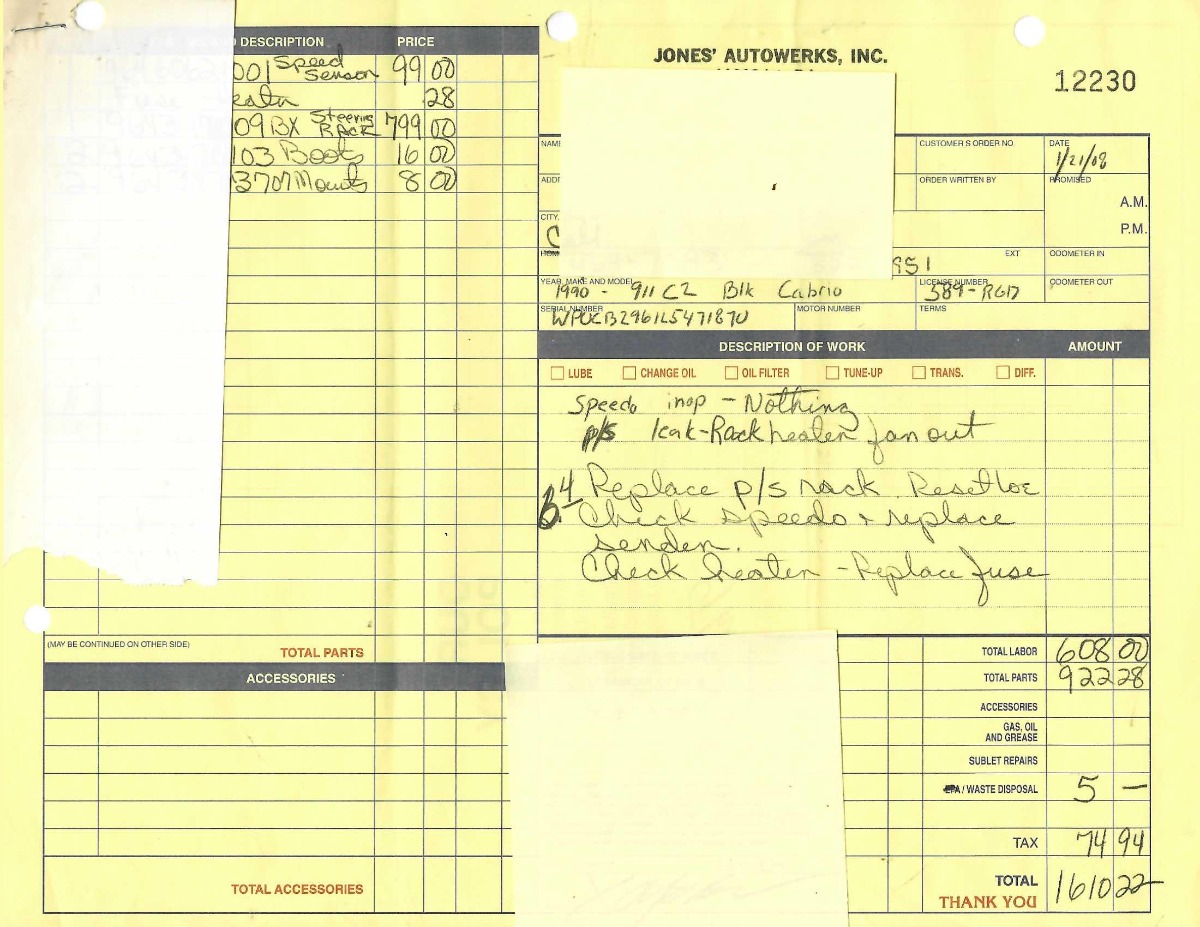 DESCRIPTION PRICE
001 Speed Sensor 99 00
28
09BX Steering Rack 799 00
103 Boots 16 00
3707 Mounts 8 00
(MAY BE CONTINUED ON OTHER SIDE)
TOTAL PARTS
ACCESSORIES
TOTAL ACCESSORIES
JONES' AUTOWERKS, INC.
12230
NAME
CUSTOMER'S ORDER NO
DATE
1/21/08
ORDER WRITTEN BY
PROMISED
A.M.
P.M.
CITY,
C
951
EXT
ODOMETER IN
YEAR, MAKE AND MODEL
1990 - 911 C2 Blk Cabrio
LICENSE NUMBER
589-RGD
ODOMETER OUT
SERIAL NUMBER
MOTOR NUMBER
TERMS
DESCRIPTION OF WORK AMOUNT
LUBE CHANGE OIL OIL FILTER TUNE-UP TRANS. DIFF.
Speedo inop - Nothing
p/s leak-Rack heater fan out
Replace p/s rack. Reset toe
Check speedo + replace
sender.
Check heater - Replace fuse
TOTAL LABOR 608 00
TOTAL PARTS 922 28
ACCESSORIES
GAS, OIL
AND GREASE
SUBLET REPAIRS
EPA / WASTE DISPOSAL 5 —
TAX 74 94
TOTAL 1610 22
THANK YOU